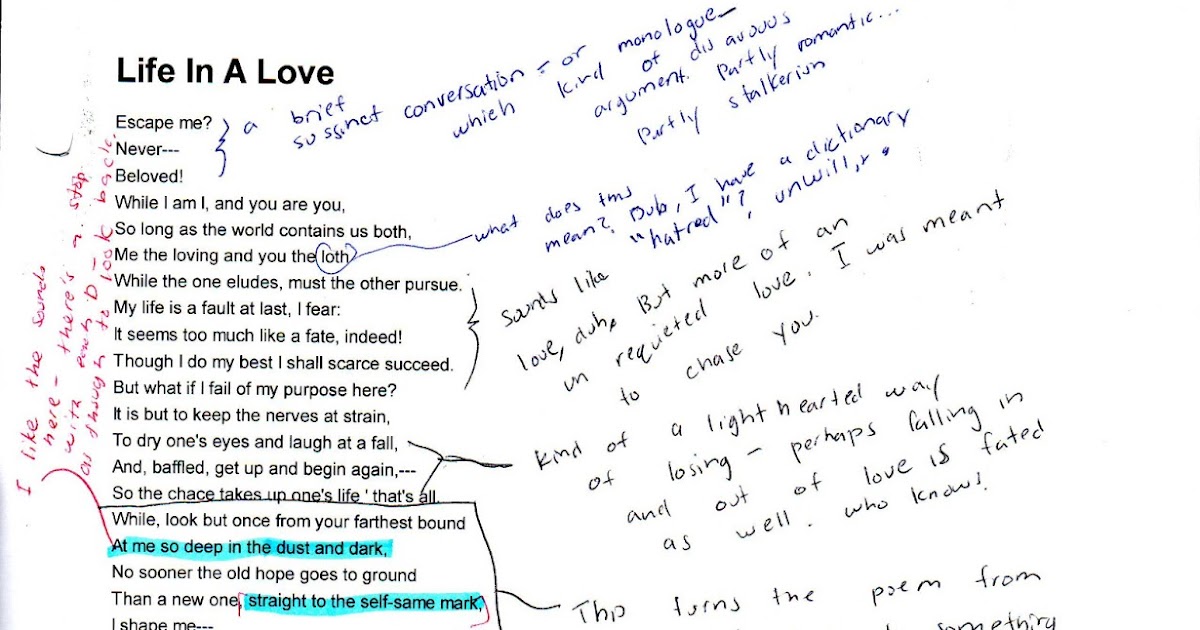 Life In A Love
Escape me?
Never---
Beloved!
While I am I, and you are you,
So long as the world contains us both,
Me the loving and you the loth
While the one eludes, must the other pursue.
My life is a fault at last, I fear:
It seems too much like a fate, indeed!
Though I do my best I shall scarce succeed.
But what if I fail of my purpose here?
It is but to keep the nerves at strain,
To dry one's eyes and laugh at a fall,
And, baffled, get up and begin again,---
So the chace takes up one's life ' that's all.
While, look but once from your farthest bound
At me so deep in the dust and dark,
No sooner the old hope goes to ground
Than a new one, straight to the self-same mark,
I shape me---
a brief
sussinct conversation - or monologue
which kind of disavouus
argument. Partly romantic...
Partly stalkerish
what does this
mean? Duh, I have a dictionary
"hatred"? unwilling
Sounds like
love, duh, But more of an
un requieted love. I was meant
to chase you.
Kind of a lighthearted way
of losing - perhaps falling in
and out of love is fated
as well. who knows.
This turns the poem from
something
I like the sounds
here - there's a stop
with each D -
as though to look back.